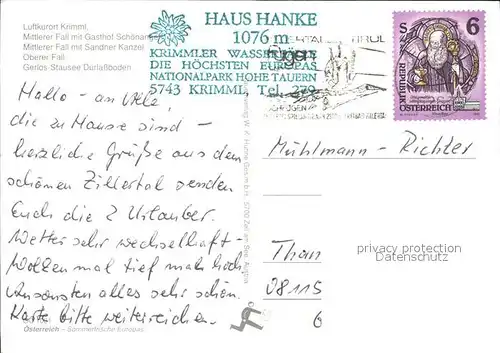 Luftkurort Krimml,
Mittlerer Fall mit Gasthof Schönangerl
Mittlerer Fall mit Sandner Kanzel
Oberer Fall
Gerlos Stausee Durlaßboden
HAUS HANKE
1076 m
KRIMMLER WASSERFÄLLE
DIE HÖCHSTEN EUROPAS
NATIONALPARK HOHE TAUERN
5743 KRIMML, Tel. 279
S 6
REPUBLIK
ÖSTERREICH
Hallo - an alle,
die zu Hause sind -
herzliche Grüße aus dem
schönen Zillertal senden
Euch die 2 Urlauber.
Wetter sehr wechselhaft -
Wolken mal tief mal hoch
Ansonsten alles sehr schön.
Karte bitte weiterreichen.
Österreich – Sommerfrische Europas
Mühlmann - Richter
Thum
08115
6
privacy protection
Datenschutz